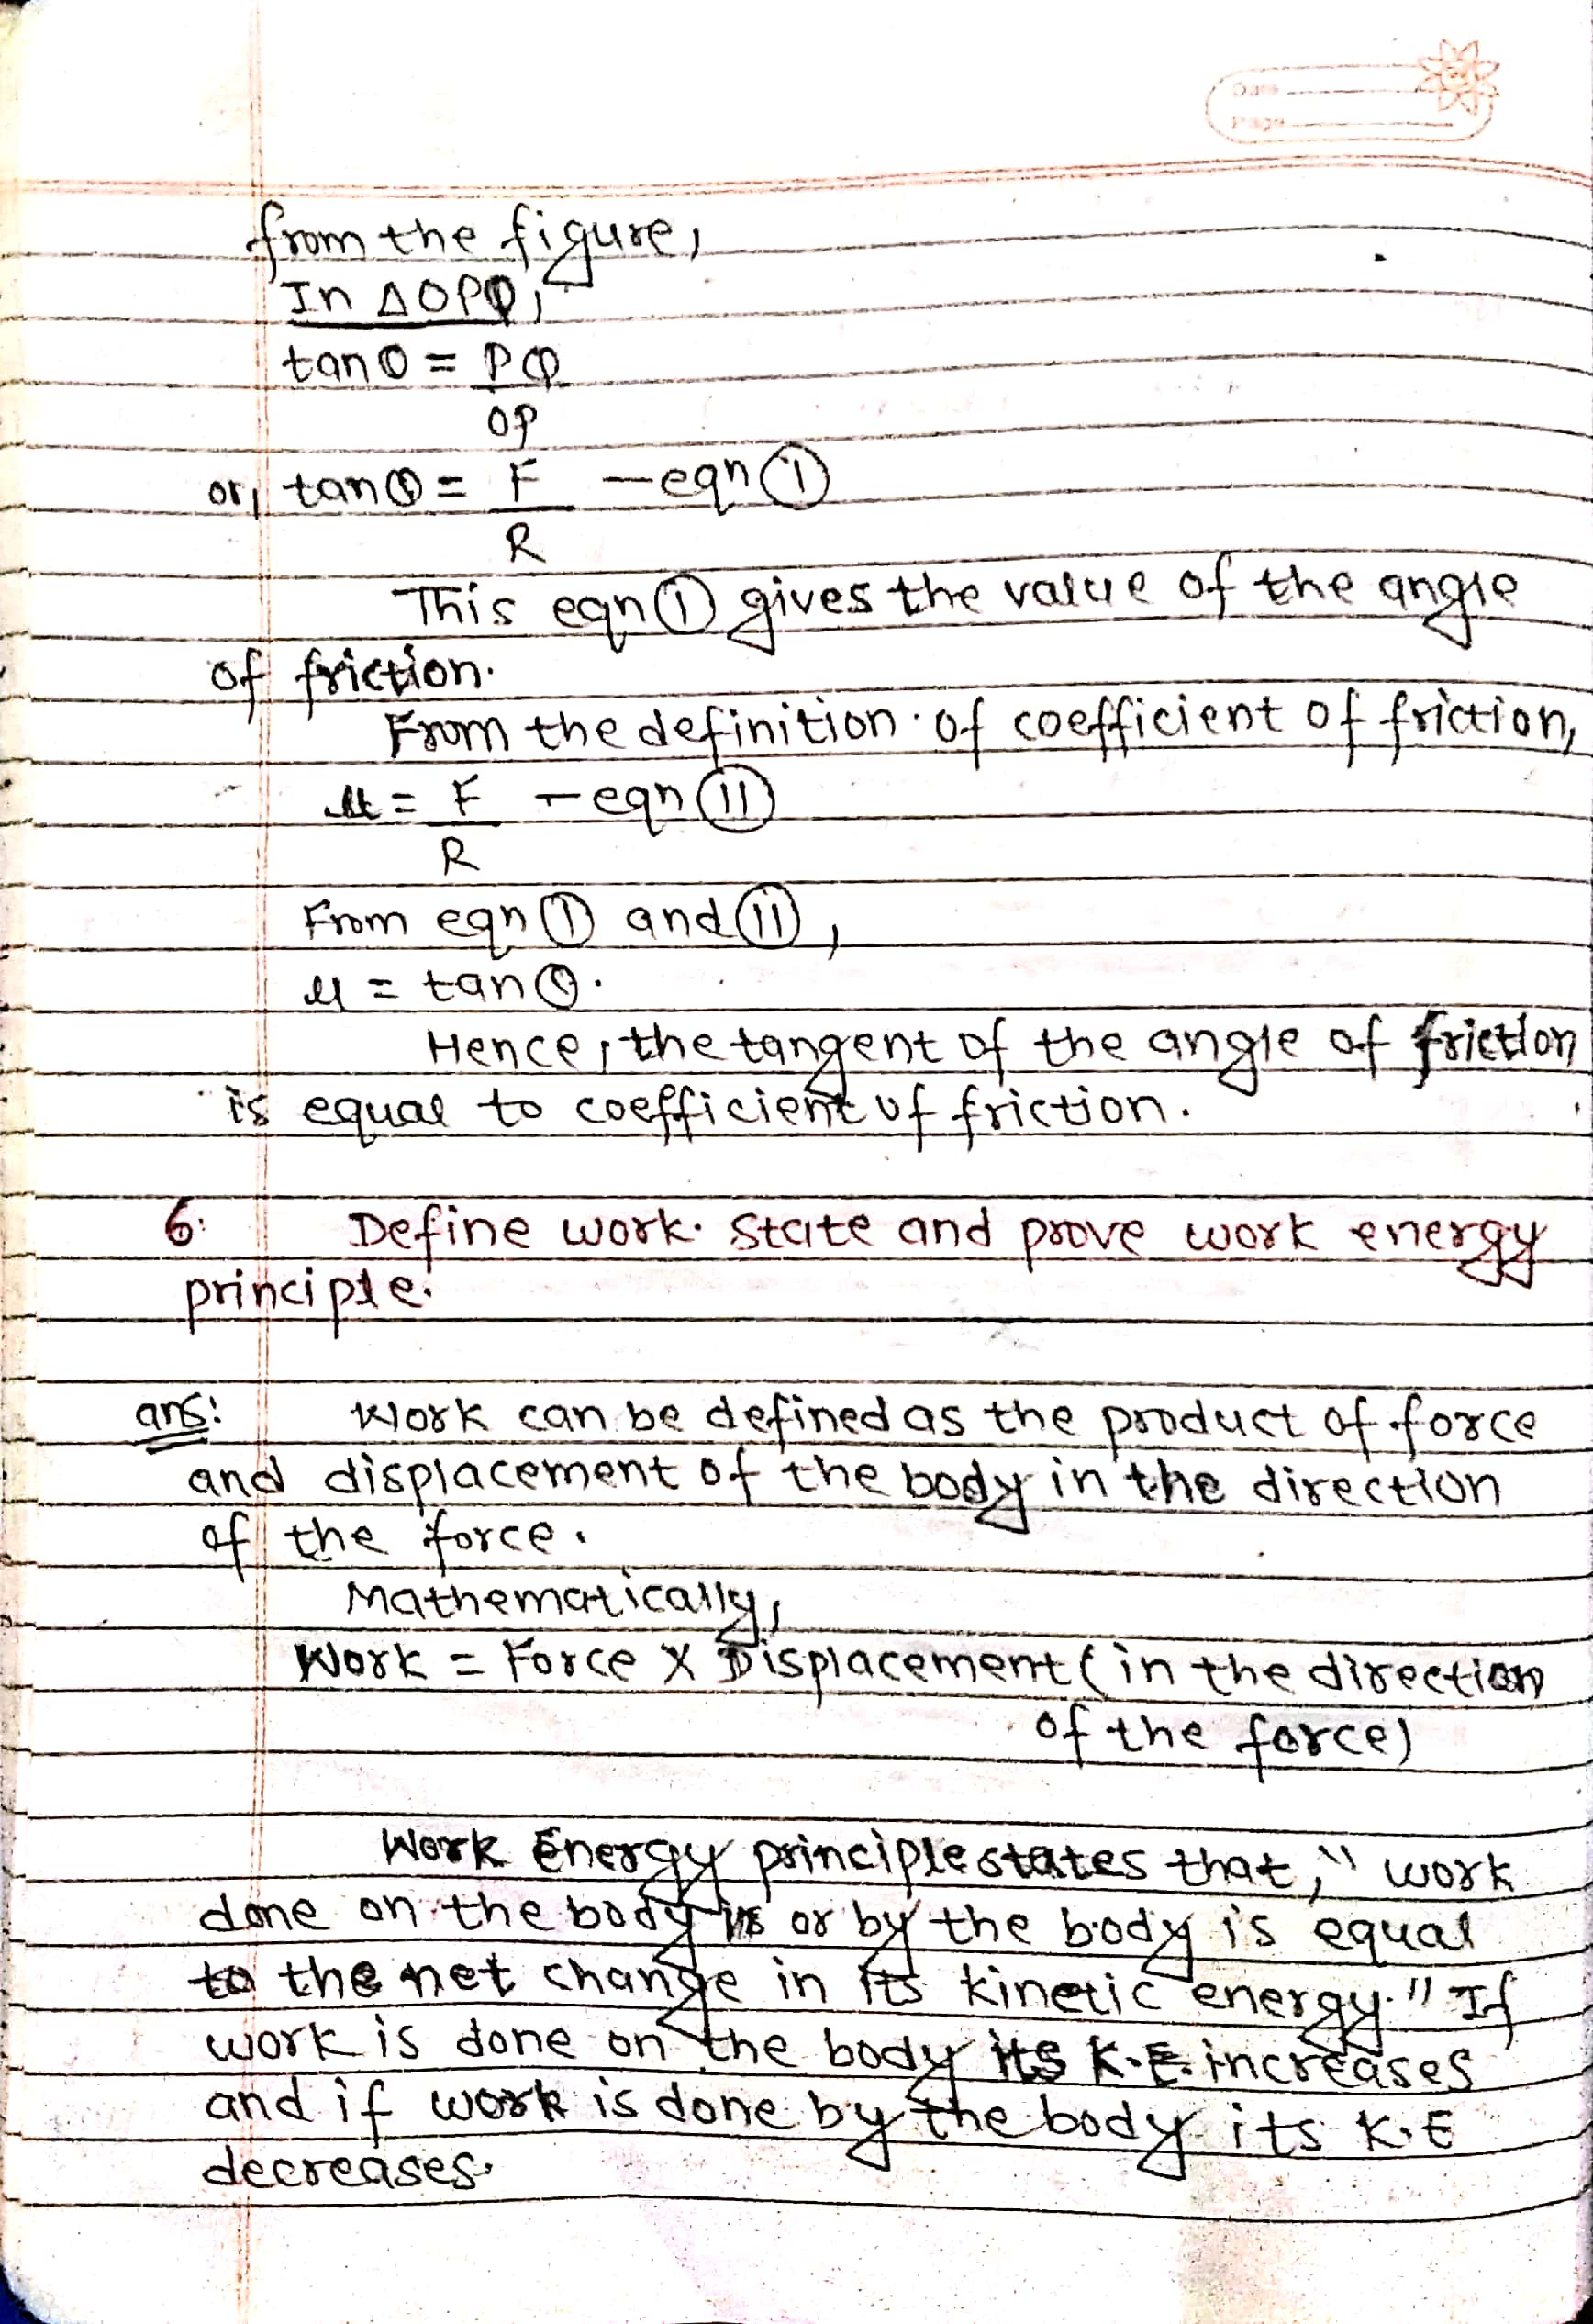 Date
Page
from the figure,
In △OPQ,
tanθ = PQ
OP
or, tanθ = F — eqn (i)
R
This eqn (i) gives the value of the angle
of friction.
From the definition of coefficient of friction,
μ = F — eqn (ii)
R
From eqn (i) and (ii),
μ = tanθ.
Hence, the tangent of the angle of friction
is equal to coefficient of friction.
6. Define work. State and prove work energy
principle.
ans: Work can be defined as the product of force
and displacement of the body in the direction
of the force.
Mathematically,
Work = Force X Displacement (in the direction
of the force)
Work Energy principle states that, " work
done on the body or by the body is equal
to the net change in its kinetic energy." If
work is done on the body its K.E. increases
and if work is done by the body its K.E
decreases.